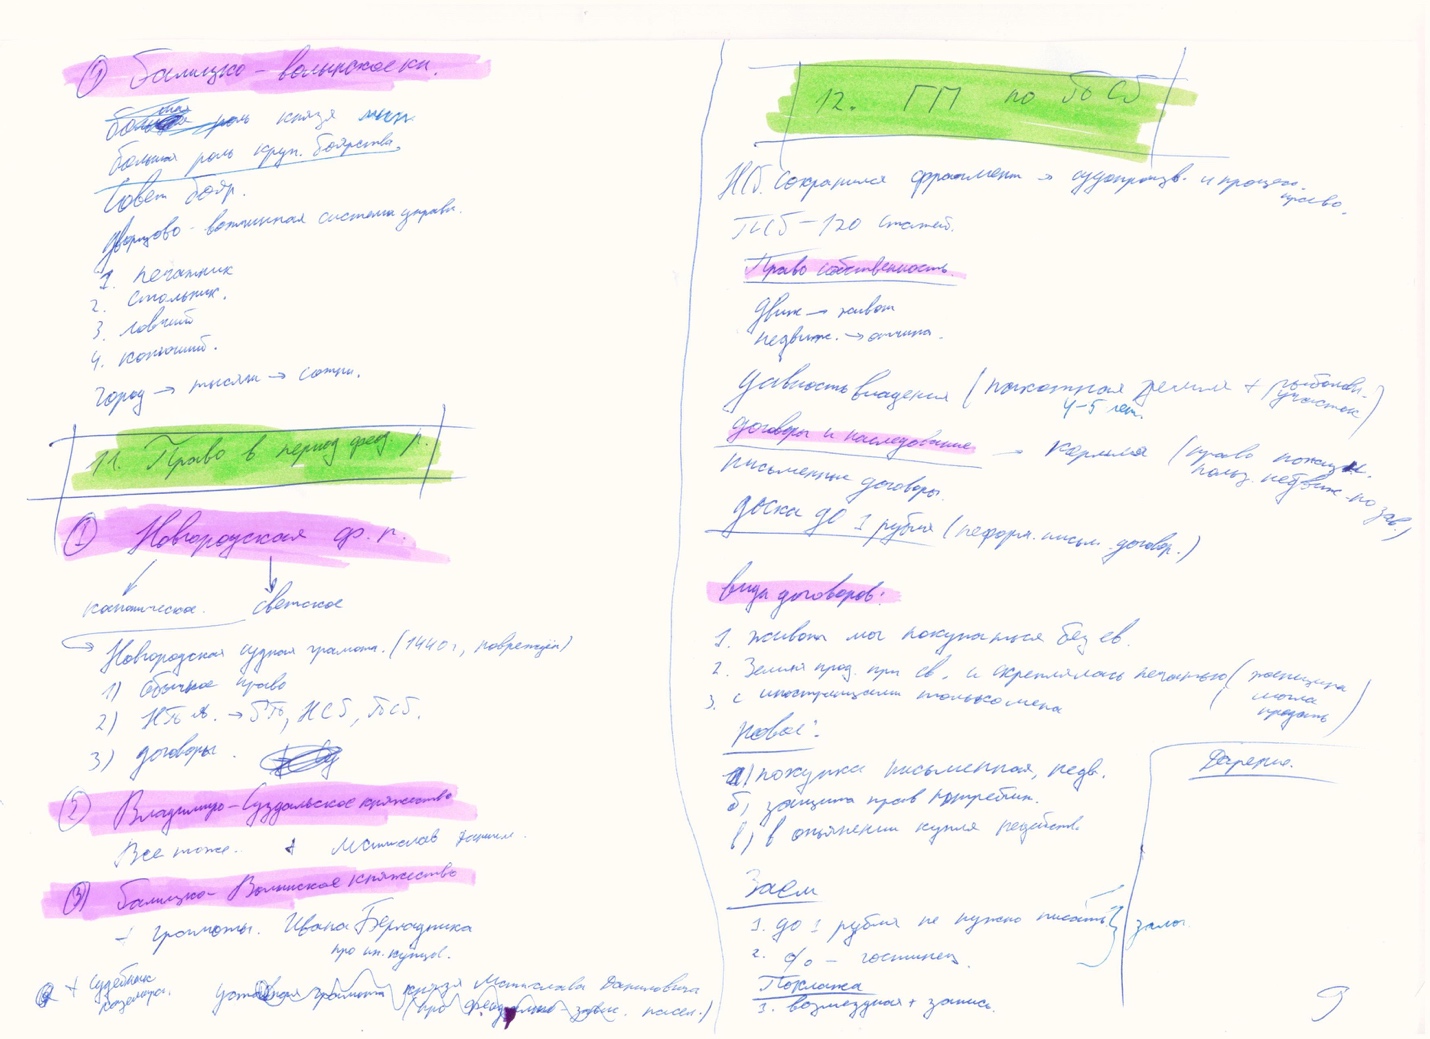 ① Галицко-волынское кн.
роль князя мин.
большая роль круп. боярства.
Совет бояр.
Дворцово-вотчинная система управл.
1. печатник
2. стольник.
3. ловчий
4. конюший.
город → тысячи → сотни.
11. Право в период феод. р.
① Новгородская ф. р.
каноническое. светское
→ Новгородская судная грамота. (1440 г, повреждён)
1) Обычное право
2) НПА. → РП, НСГ, ПСГ.
3) договоры.
② Владимиро-Суздальское княжество
Все тоже. + Мстислав
③ Галицко-Волынское княжество
+ грамоты. Ивана Берладника
про ин. купцов.
+ Судебник
Казимира.
уставная грамота князя Мстислава Даниловича
(про феодально-завис. насел.)
12. ГП по ПСГ
НСГ. сохранился фрагмент → судопроизв. и процесс.
право.
ПСГ - 120 статей.
Право собственность.
движ → живот
недвиж. → отчина.
Давность владения (пахотная земля + рыболовн.
участок)
4-5 лет.
договоры и наследование → кормля (право пожизн.
польз. недвиж. по зав.)
письменные договоры.
доска до 1 рубля (неформ. письм. договор.)
виды договоров:
1. живота мог покупаться без св.
2. Земля прод. при св. и скреплялась печатью (женщина
могла
продать)
3. с иностранцами только мена
Новое:
а) покупка письменная, недв.
б) защита прав потребит.
в) в опьянении купля недейств.
Дарение.
Заем
1. до 1 рубля не нужно писать } залог
2. % - гостинец
Поклажа
3. возмездная + запись.
9